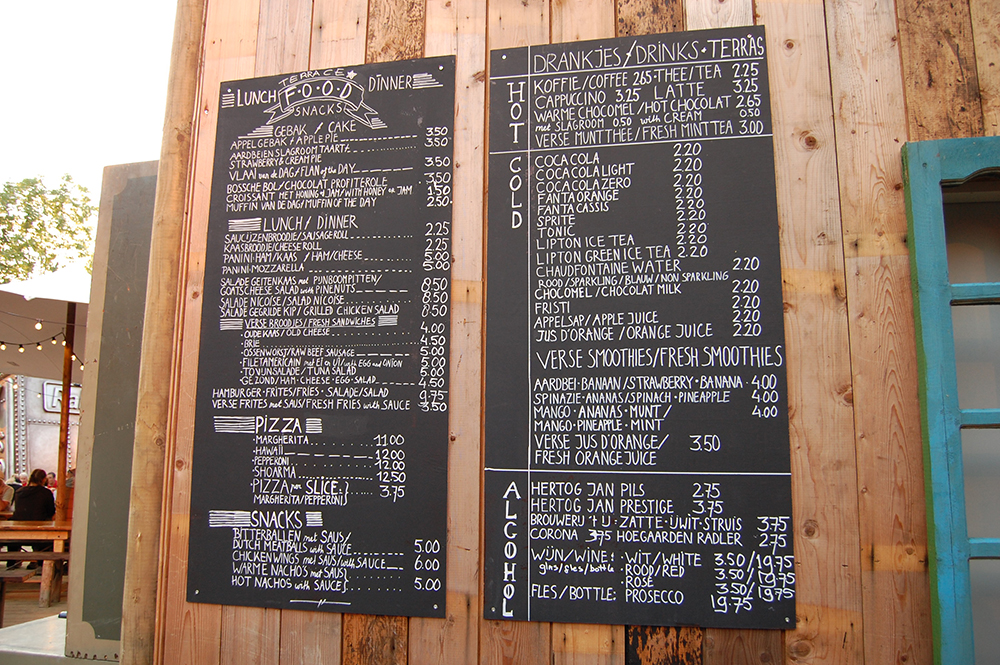 TERRACE
LUNCH FOOD DINNER
SNACKS
GEBAK / CAKE
APPEL GEBAK / APPLE PIE 3.50
AARDBEIEN SLAGROOM TAART 3.50
STRAWBERRY & CREAM PIE
VLAAI van de DAG / FLAN of the DAY 3.50
BOSSCHE BOL / CHOCOLAT PROFITEROLE 3.50
CROISSANT MET HONING of JAM / WITH HONEY or JAM 1.50
MUFFIN VAN DE DAG / MUFFIN OF THE DAY 2.50
LUNCH / DINNER
SAUCIJZENBROODJE / SAUSAGE ROLL 2.25
KAASBROODJE / CHEESE ROLL 2.25
PANINI-HAM / KAAS / HAM / CHEESE 5.00
PANINI-MOZZARELLA 5.00
SALADE GEITENKAAS met PIJNBOOMPITTEN /
GOATSCHEESE SALAD with PINENUTS 8.50
SALADE NICOISE / SALAD NICOISE 8.50
SALADE GEGRILDE KIP / GRILLED CHICKEN SALAD 8.50
VERSE BROODJES / FRESH SANDWICHES
• OUDE KAAS / OLD CHEESE 4.00
• BRIE 4.50
• OSSENWORST / RAW BEEF SAUSAGE 5.00
• FILET AMERICAIN met EI en UI / with EGG and ONION 5.00
• TONIJNSALADE / TUNA SALAD 5.00
• GEZOND / HAM • CHEESE • EGG • SALAD 4.50
HAMBURGER • FRITES / FRIES • SALADE / SALAD 9.75
VERSE FRITES met SAUS / FRESH FRIES with SAUCE 3.50
PIZZA
• MARGHERITA 11.00
• HAWAII 12.00
• PEPPERONI 12.00
• SHOARMA 12.50
• PIZZA per SLICE } 3.75
MARGHERITA / PEPPERONI
SNACKS
BITTERBALLEN met SAUS /
DUTCH MEATBALLS with SAUCE 5.00
CHICKENWINGS met SAUS / with SAUCE 6.00
WARME NACHO'S met SAUS
HOT NACHOS with SAUCE 5.00
DRANKJES / DRINKS • TERRAS
HOT
KOFFIE / COFFEE 2.65 • THEE / TEA 2.25
CAPPUCCINO 3.25 LATTE 3.25
WARME CHOCOMEL / HOT CHOCOLAT 2.65
met SLAGROOM 0.50 with CREAM 0.50
VERSE MUNTTHEE / FRESH MINT TEA 3.00
COLD
COCA COLA 2.20
COCA COLA LIGHT 2.20
COCA COLA ZERO 2.20
FANTA ORANGE 2.20
FANTA CASSIS 2.20
SPRITE 2.20
TONIC 2.20
LIPTON ICE TEA 2.20
LIPTON GREEN ICE TEA 2.20
CHAUDFONTAINE WATER 2.20
ROOD / SPARKLING / BLAUW / NON SPARKLING
CHOCOMEL / CHOCOLAT MILK 2.20
FRISTI 2.20
APPELSAP / APPLE JUICE 2.20
JUS D'ORANGE / ORANGE JUICE 2.20
VERSE SMOOTHIES / FRESH SMOOTHIES
AARDBEI • BANAAN / STRAWBERRY • BANANA 4.00
SPINAZIE • ANANAS / SPINACH • PINEAPPLE 4.00
MANGO • ANANAS • MUNT / 4.00
MANGO • PINEAPPLE • MINT
VERSE JUS D'ORANGE / 3.50
FRESH ORANGE JUICE
ALCOHOL
HERTOG JAN PILS 2.75
HERTOG JAN PRESTIGE 3.75
BROUWERIJ 't IJ • ZATTE • IJWIT • STRUIS 3.75
CORONA 3.75 HOEGAARDEN RADLER 2.75
WIJN / WINE: • WIT / WHITE 3.50 / 19.75
glas / glass / bottle • ROOD / RED 3.50 / 19.75
• ROSE 3.50 / 19.75
FLES / BOTTLE: PROSECCO 19.75